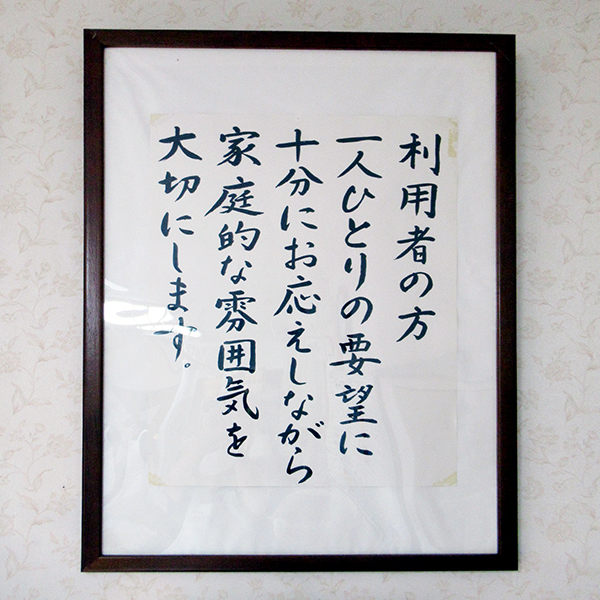 利用者の方
一人ひとりの要望に
十分にお応えしながら
家庭的な雰囲気を
大切にします。